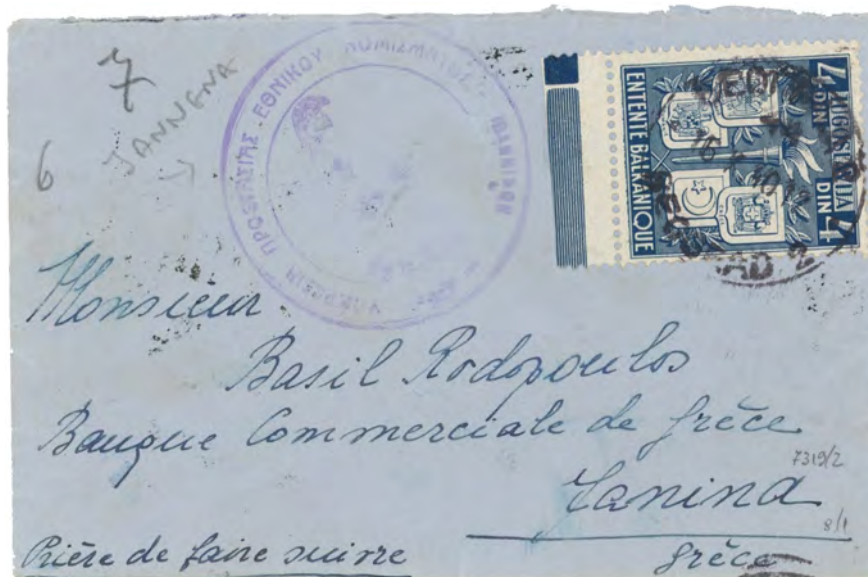 7
JANNENA
6
ΥΠΗΡΕΣΙΑ ΠΡΟΣΤΑΣΙΑΣ ΕΘΝΙΚΟΥ ΝΟΜΙΣΜΑΤΟΣ ΙΩΑΝΝΙΝΩΝ
4 JUGOSLAVIJA 4
DIN DIN
ENTENTE BALKANIQUE
BEOGRAD
Monsieur
Basil Rodopoulos
Banque Commerciale de Grèce
7319/2
Janina
8/1
Prière de faire suivre
Grèce